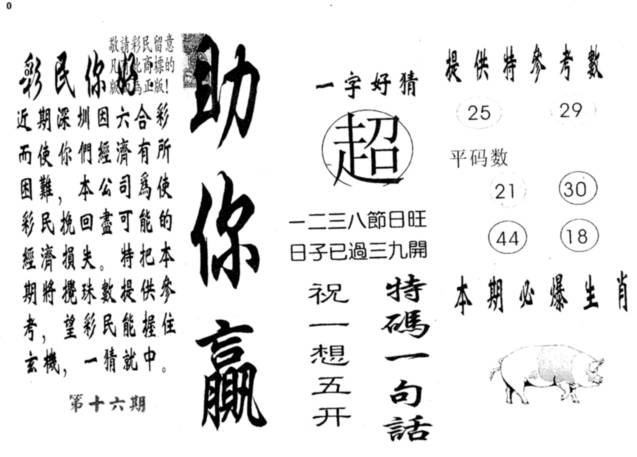 0
敬請彩民留意
彩民你好
近期深圳因六合彩
而使你們經濟有所
困難，本公司爲使
彩民挽回盡可能的
經濟損失。特把本
期將攪珠數提供參
考，望彩民能握住
玄機，一猜就中。
第十六期
助你贏
一字好猜
超
一二三八節日旺
日子已過三九開
特碼一句話
祝一想五开
提供特參考數
25
29
平码数
21
30
44
18
本期必爆生肖